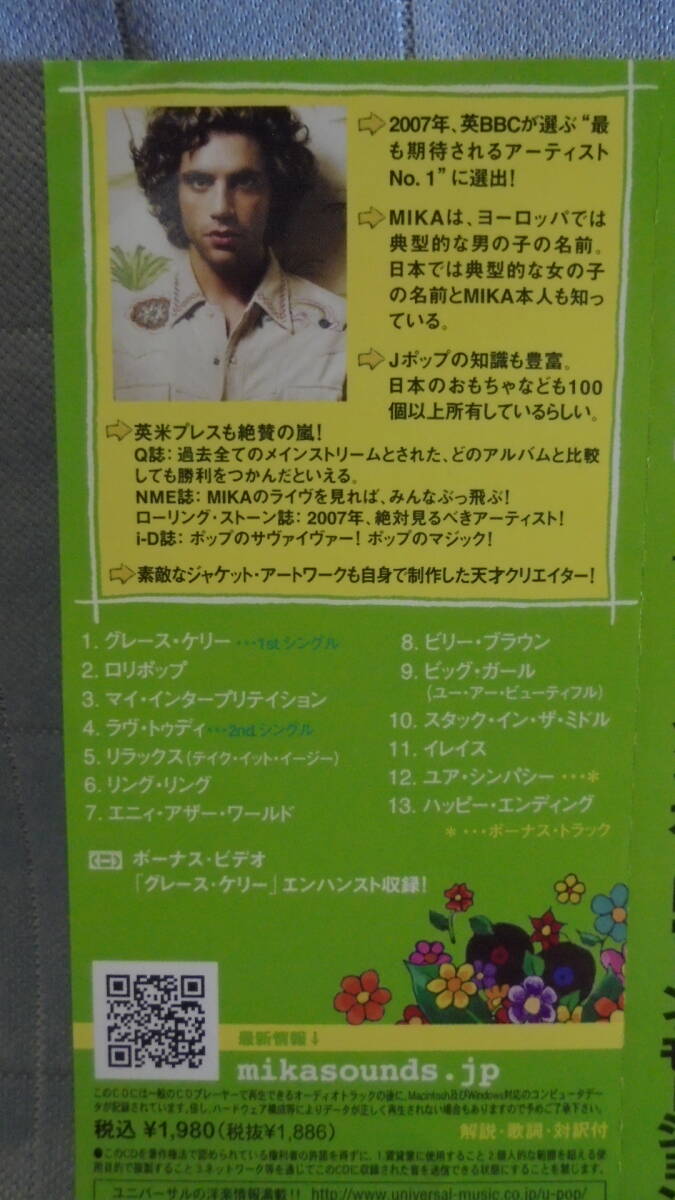 2007年、英BBCが選ぶ“最
も期待されるアーティスト
No. 1”に選出!
MIKAは、ヨーロッパでは
典型的な男の子の名前。
日本では典型的な女の子
の名前とMIKA本人も知っ
ている。
Jポップの知識も豊富。
日本のおもちゃなども100
個以上所有しているらしい。
英米プレスも絶賛の嵐!
Q誌: 過去全てのメインストリームとされた、どのアルバムと比較
しても勝利をつかんだといえる。
NME誌: MIKAのライヴを見れば、みんなぶっ飛ぶ!
ローリング・ストーン誌: 2007年、絶対見るべきアーティスト!
i-D誌: ポップのサヴァイヴァー! ポップのマジック!
素敵なジャケット・アートワークも自身で制作した天才クリエイター!
1. グレース・ケリー ・・・1st シングル
2. ロリポップ
3. マイ・インタープリテイション
4. ラヴ・トゥデイ・・・2nd シングル
5. リラックス(テイク・イット・イージー)
6. リング・リング
7. エニィ・アザー・ワールド
8. ビリー・ブラウン
9. ビッグ・ガール
(ユー・アー・ビューティフル)
10. スタック・イン・ザ・ミドル
11. イレイス
12. ユア・シンパシー ・・・*
13. ハッピー・エンディング
* ・・・ボーナス・トラック
ボーナス・ビデオ
「グレース・ケリー」エンハンスト収録!
最新情報↓
mikasounds.jp
このCDには一般のCDプレーヤーで再生できるオーディオトラックの後に、Macintosh及びWindows対応のコンピュータデー
タが記録されています。但し、ハードウェア構成等によりデータが正しく再生されない場合もありますので予めご了承下さい。
税込 ¥1,980(税抜¥1,886)
解説・歌詞・対訳付
●このCDを著作権法で認められている権利者の許諾を得ずに、1.賃貸業に使用すること 2.個人的な範囲を超える使
用目的で複製すること 3.ネットワーク等を通じてこのCDに収録された音を送信できる状態にすることを禁じます。
ユニバーサルの洋楽情報満載!! http://www.universal-music.co.jp/u-pop/